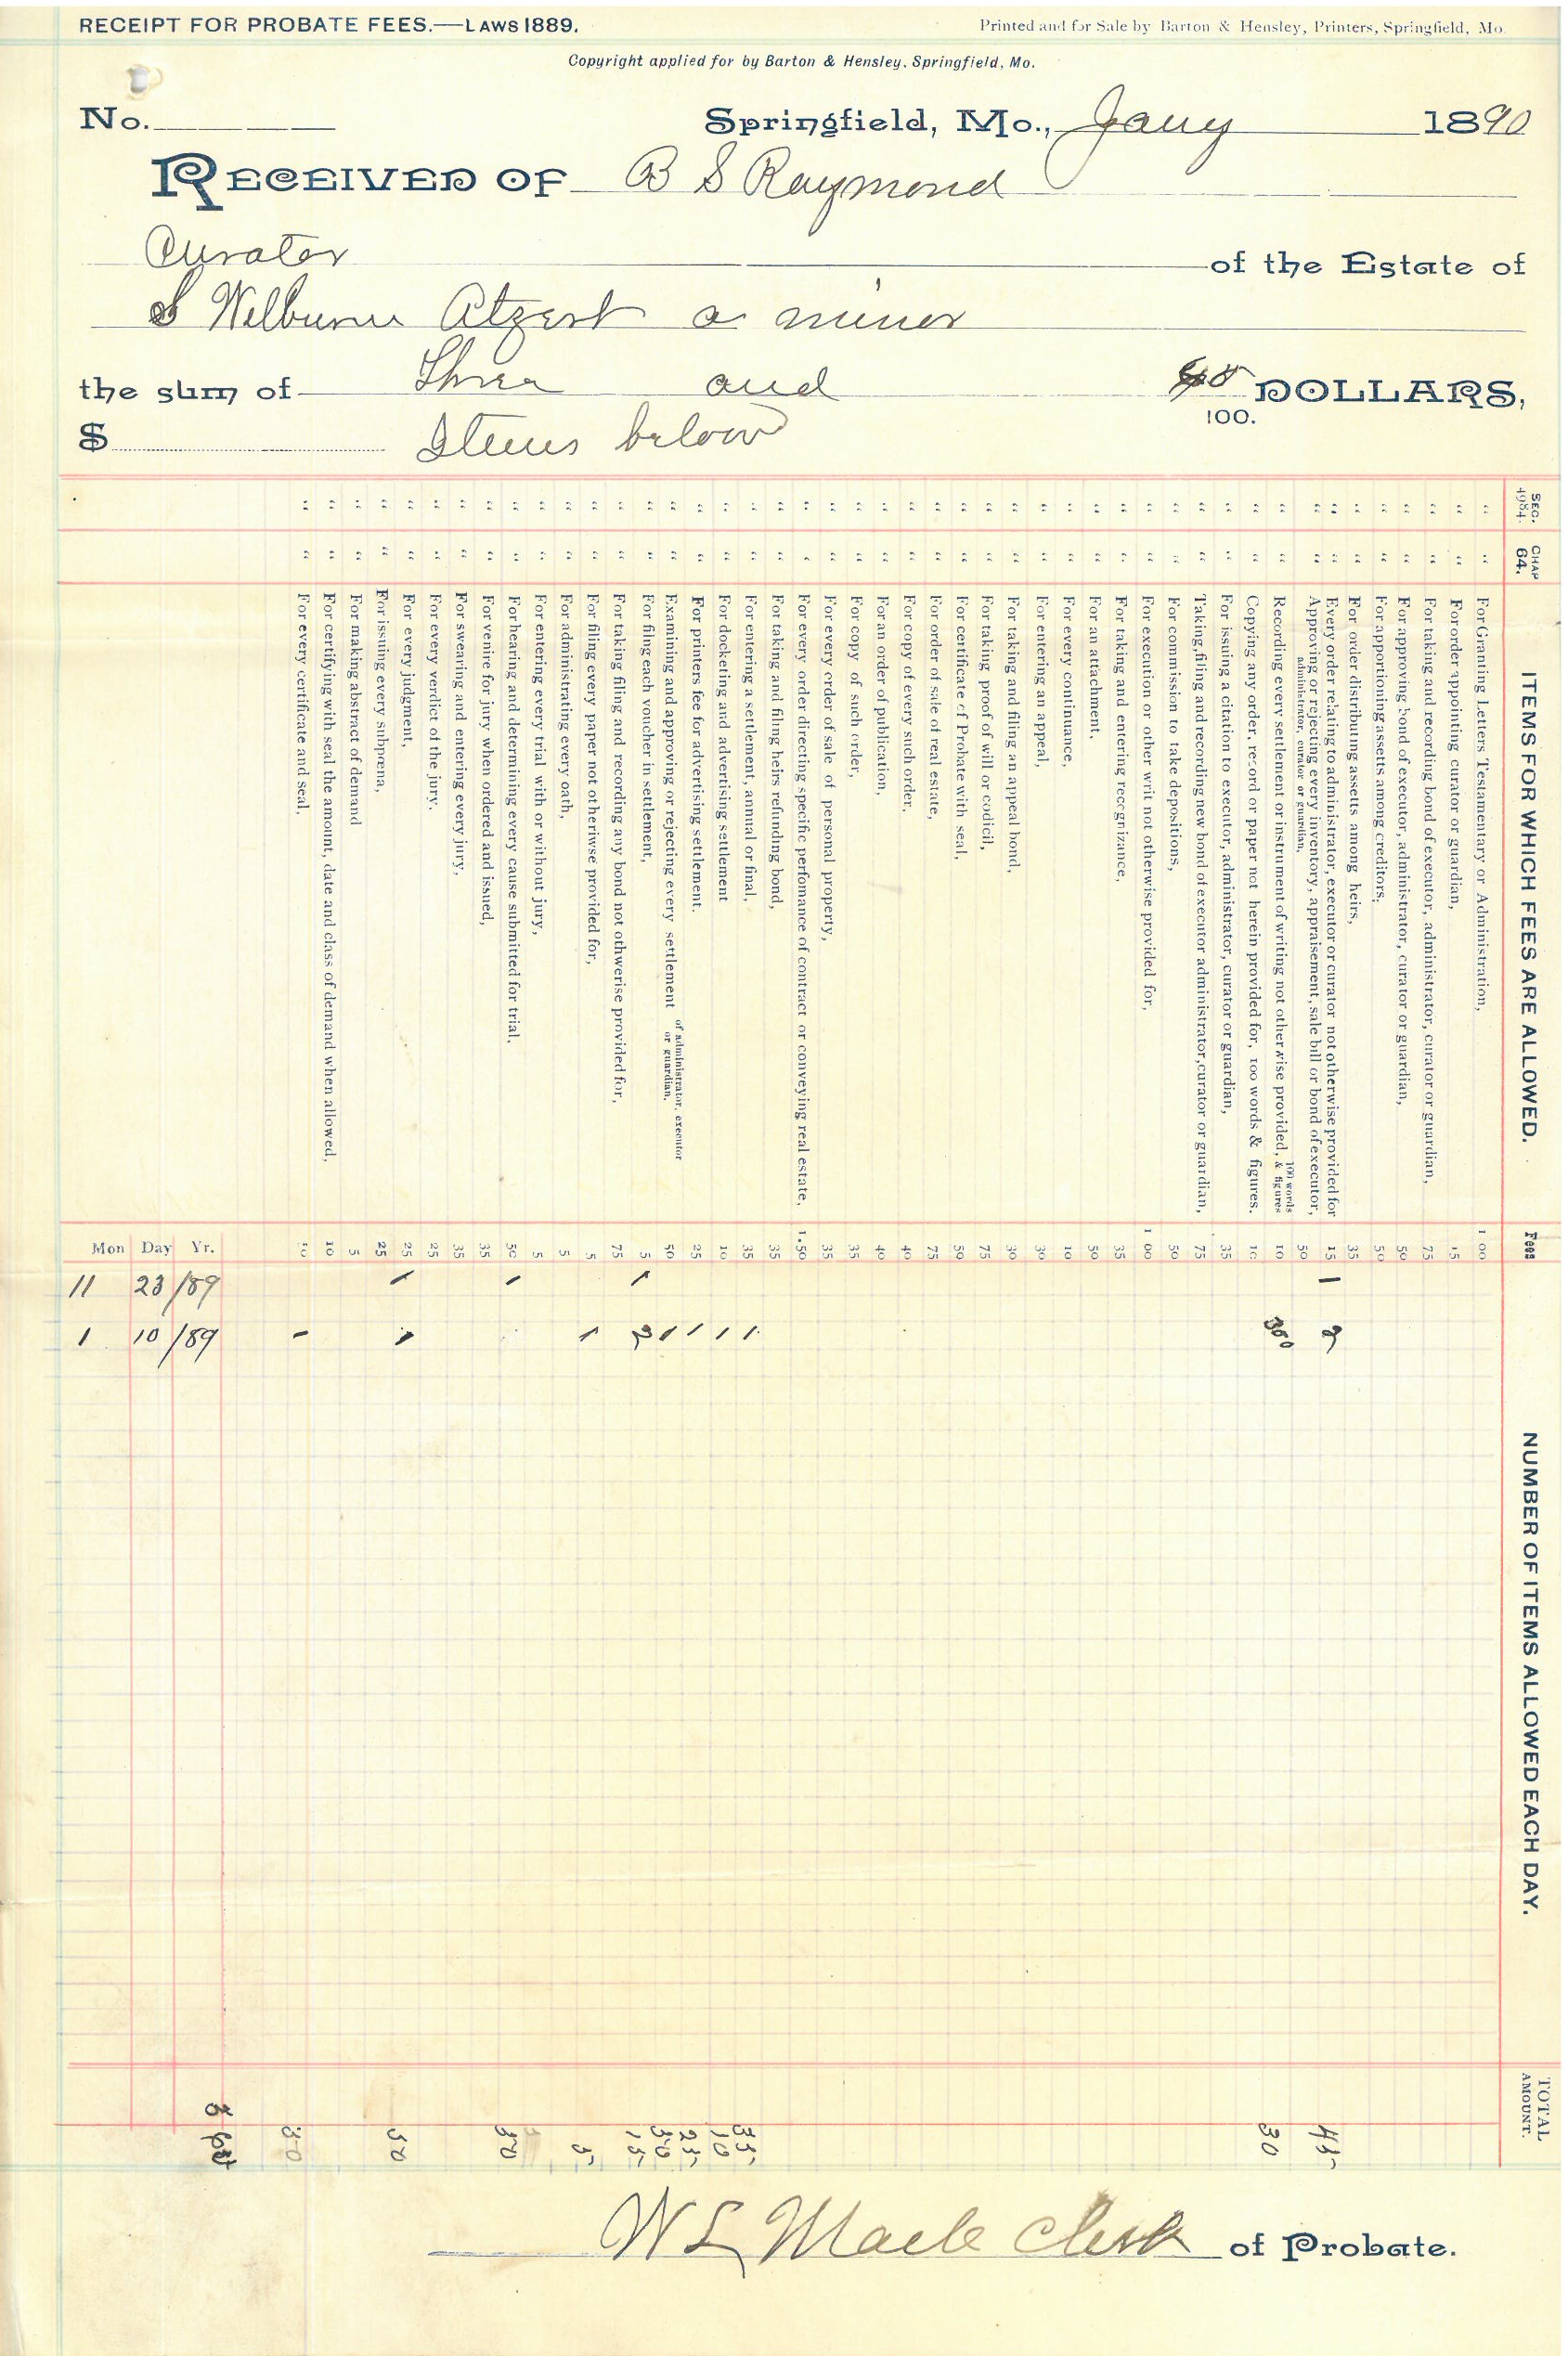 RECEIPT FOR PROBATE FEES.—LAWS 1889.
Printed and for Sale by Barton & Hensley, Printers, Springfield, Mo.
Copyright applied for by Barton & Hensley, Springfield, Mo.
No. Springfield, Mo., Jany 1890
RECEIVED OF B S Raymond
Curator of the Estate of
S Wilburn Atzert a minor
the sum of Three and DOLLARS,
100.
$ Items below
SEC. 4984. CHAP 64. ITEMS FOR WHICH FEES ARE ALLOWED. Fees NUMBER OF ITEMS ALLOWED EACH DAY. TOTAL AMOUNT.
" " For Granting Letters Testamentary or Administration, 1 00
" " For order appointing curator or guardian, 15
" " For taking and recording bond of executor, administrator, curator or guardian, 75
" " For approving bond of executor, administrator, curator or guardian, 50
" " For apportioning assetts among creditors, 50
" " For order distributing assetts among heirs, 35
" " Every order relating to administrator, executor or curator not otherwise provided for 15 1 2 45
" " Approving or rejecting every inventory, appraisement, sale bill or bond of executor, administrator, curator or guardian, 50
" " Recording every settlement or instrument of writing not otherwise provided, 100 words & figures 10 300 30
" " Copying any order, record or paper not herein provided for, 100 words & figures. 10
" " For issuing a citation to executor, administrator, curator or guardian, 35
" " Taking, filing and recording new bond of executor administrator, curator or guardian, 75
" " For commission to take depositions, 50
" " For execution or other writ not otherwise provided for, 1 00
" " For taking and entering recognizance, 35
" " For an attachment, 50
" " For every continuance, 10
" " For entering an appeal, 30
" " For taking and filing an appeal bond, 30
" " For taking proof of will or codicil, 75
" " For certificate of Probate with seal, 50
" " For order of sale of real estate, 75
" " For copy of every such order, 40
" " For an order of publication, 40
" " For copy of such order, 35
" " For every order of sale of personal property, 35
" " For every order directing specific perfomance of contract or conveying real estate, 1.50
" " For taking and filing heirs refunding bond, 35
" " For entering a settlement, annual or final, 35 1 35
" " For docketing and advertising settlement 10 1 10
" " For printers fee for advertising settlement. 25 1 25
" " Examining and approving or rejecting every settlement of administrator, executor or guardian, 50 1 50
" " For filng each voucher in settlement, 5 1 2 15
" " For taking filing and recording any bond not othwerise provided for, 75
" " For filing every paper not otheriwse provided for, 5 1 5
" " For administrating every oath, 5
" " For entering every trial with or without jury, 5
" " For hearing and determining every cause submitted for trial, 50 1 50
" " For venire for jury when ordered and issued, 35
" " For swearing and entering every jury, 35
" " For every verdict of the jury. 25
" " For every judgment, 25 1 1 50
" " For issuing every subpœna, 25
" " For making abstract of demand 5
" " For certifying with seal the amount, date and class of demand when allowed, 10
" " For every certificate and seal, 50
Mon Day Yr.
11 23 /89
1 10 /89
W L Mack Clerk of Probate.